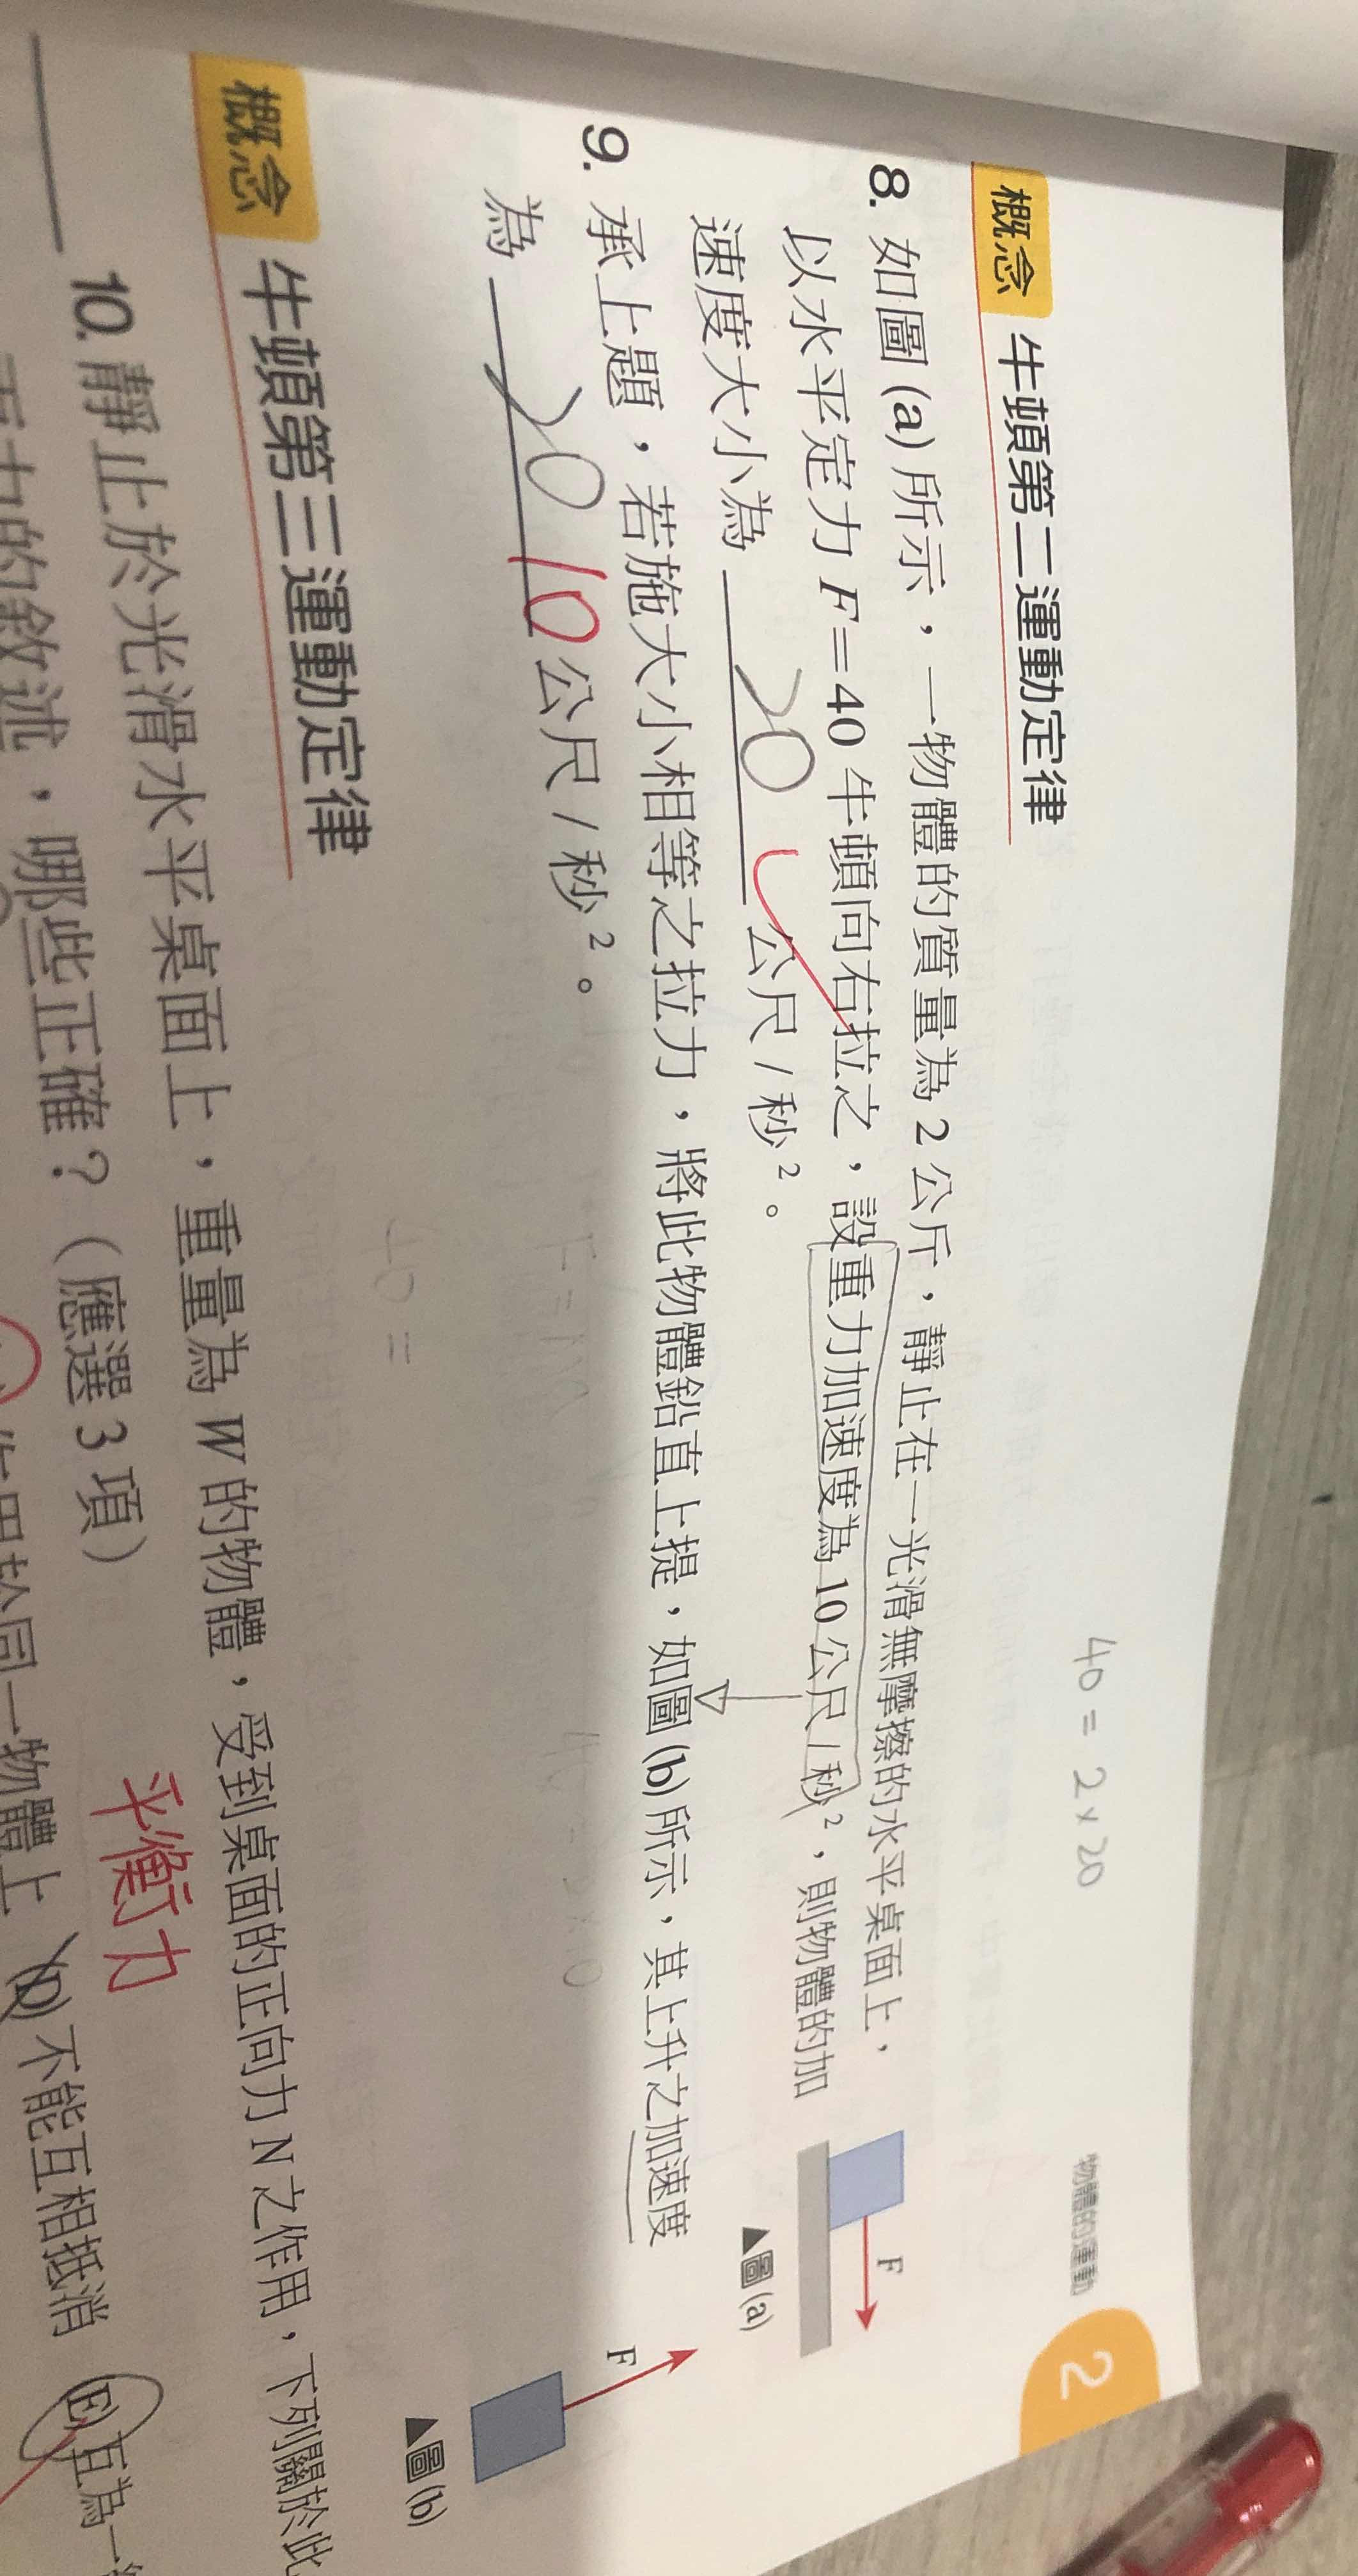 物體的運動
2
40 = 2 × 20
概念 牛頓第二運動定律
8. 如圖(a)所示，一物體的質量為 2 公斤，靜止在一光滑無摩擦的水平桌面上，
以水平定力 F=40 牛頓向右拉之，設重力加速度為 10 公尺/秒²，則物體的加
速度大小為 20 公尺/秒²。
F
▲圖(a)
9. 承上題，若施大小相等之拉力，將此物體鉛直上提，如圖(b)所示，其上升之加速度
為 20 10 公尺/秒²。
F
▲圖(b)
40 =
概念 牛頓第三運動定律
10. 靜止於光滑水平桌面上，重量為 W 的物體，受到桌面的正向力 N 之作用，下列關於此
力的敘述，哪些正確？（應選 3 項）
平衡力
同一物體上 (D)不能互相抵消 (E)互為一